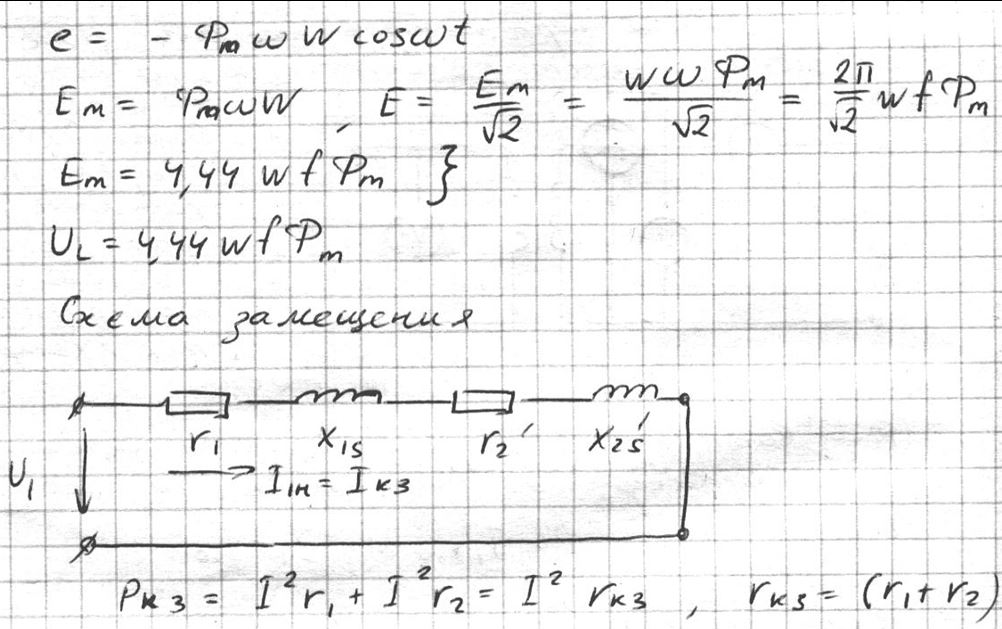 e = - Φm ω W cosωt
Em = ΦmωW , E = Em/√2 = WωΦm/√2 = 2π/√2 wfΦm
Em = 4,44 wfΦm }
UL = 4,44 wfΦm
Схема замещения
r1 x1s r2' x2s'
U1 I1н = Iкз
Pкз = I²r1 + I²r2 = I² rкз , rкз = (r1+r2)